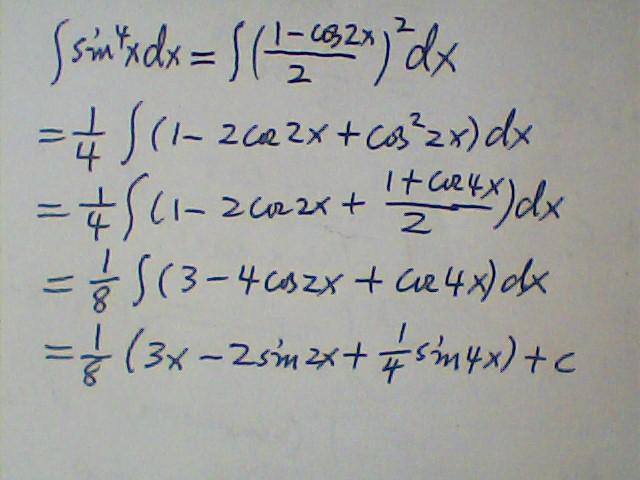 ∫sin⁴xdx = ∫((1-cos2x)/2)²dx
= 1/4 ∫(1-2cos2x+cos²2x)dx
= 1/4 ∫(1-2cos2x+(1+cos4x)/2)dx
= 1/8 ∫(3-4cos2x+cos4x)dx
= 1/8 (3x-2sin2x+1/4 sin4x)+c